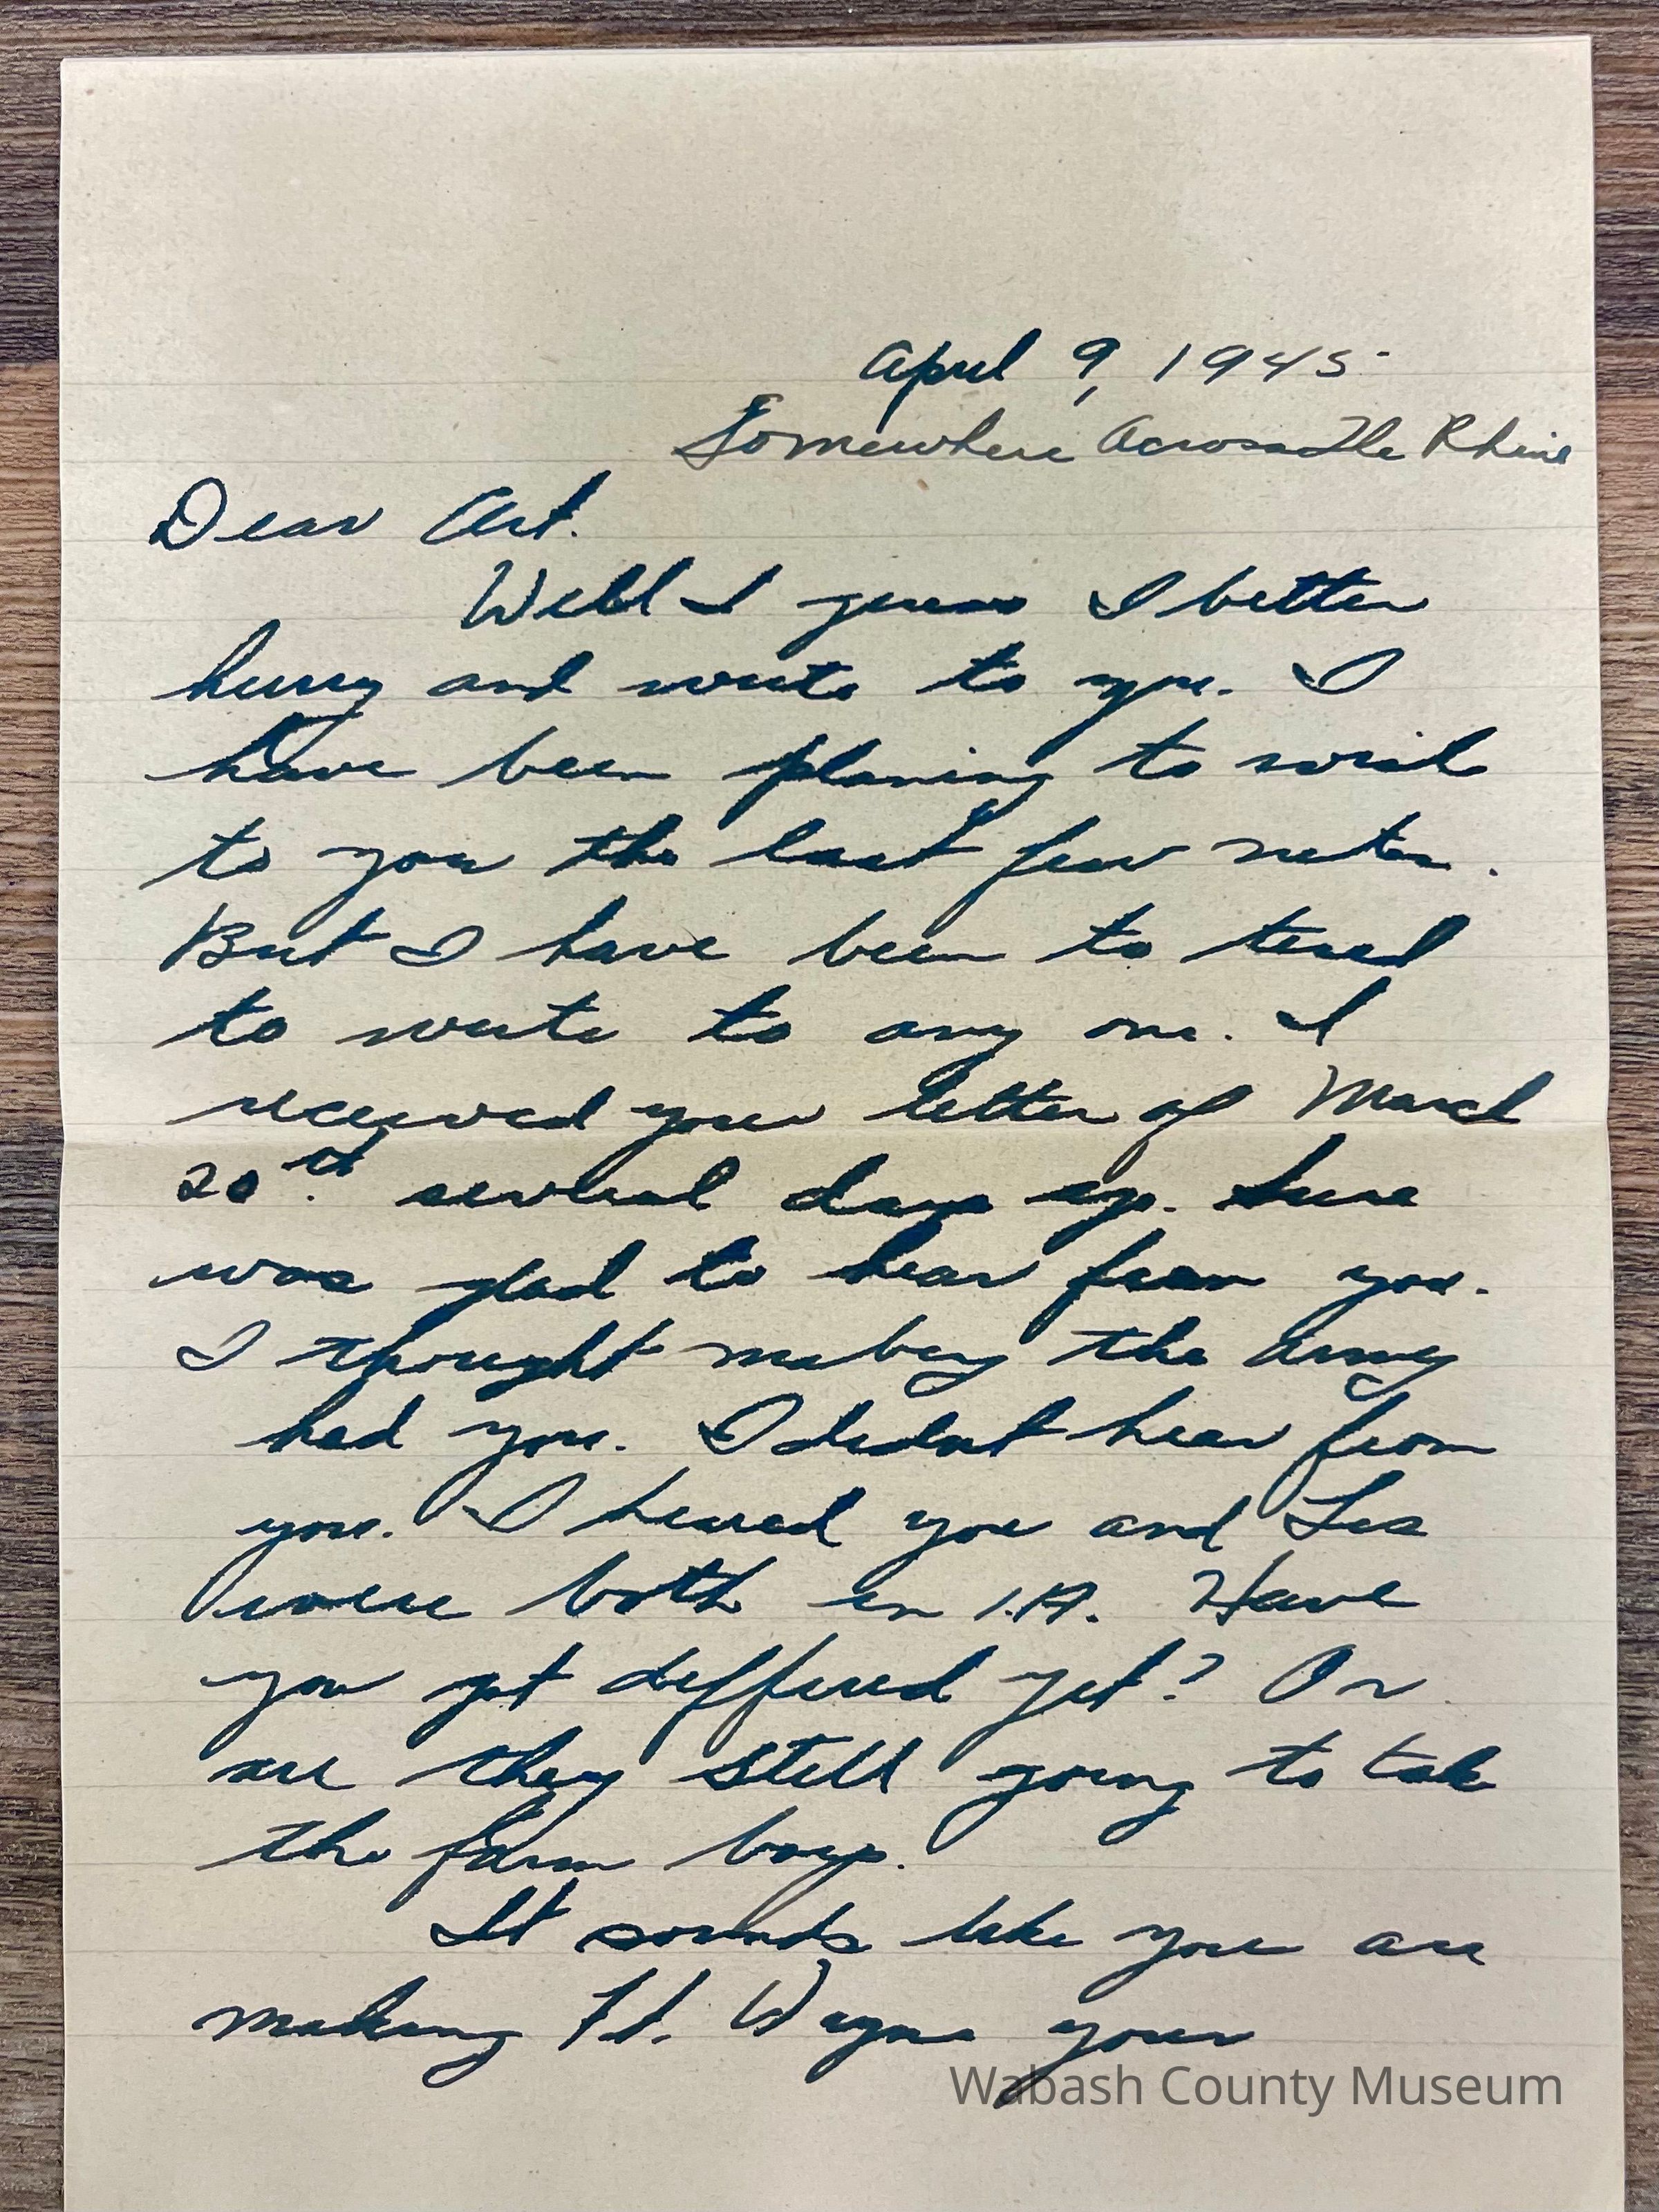 April 9, 1945
Somewhere Across The Rhine
Dear Art.
Well I guess I better
hurry and write to you. I
have been planing to write
to you the last few nites.
But I have been to tired
to write to any one. I
received your letter of March
20th. several days ago. Sure
was glad to hear from you.
I thought mabey the army
had you. I didnt hear from
you. I heared you and Les
were both in 1.A. Have
you got deffered yet? Or
are they still going to take
the farm boys.
It sounds like you are
making Ft. Wayne your
Wabash County Museum